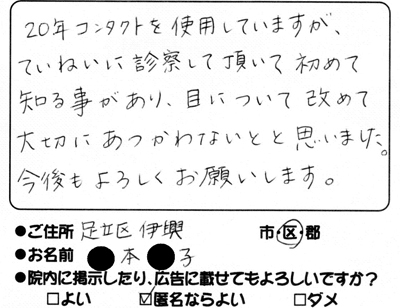 20年コンタクトを使用していますが、
ていねいに診察して頂いて初めて
知る事があり、目について改めて
大切にあつかわないとと思いました。
今後もよろしくお願いします。
●ご住所 足立区伊興 市・区・郡
●お名前 ●本●子
●院内に掲示したり、広告に載せてもよろしいですか?
□よい ☑匿名ならよい □ダメ